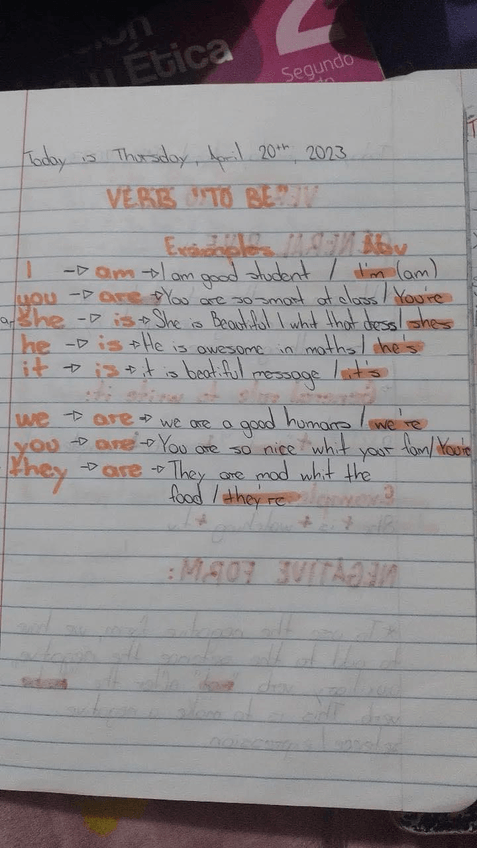 ción
y Ética
2
Segundo
Today is Thursday, April 20th, 2023
VERB "TO BE"
Examples
I -> am -> I am good student / I'm (am)
you -> are -> You are so smart of class / You're
She -> is -> She is Beautiful whit that dess / she's
he -> is -> He is awesome in maths / he's
it -> is -> it is beatiful message / it's
we -> are -> we are a good humans / we're
you -> are -> You are so nice whit your fam / You're
they -> are -> They are mad whit the
food / they're
NEGATIVE FORM: